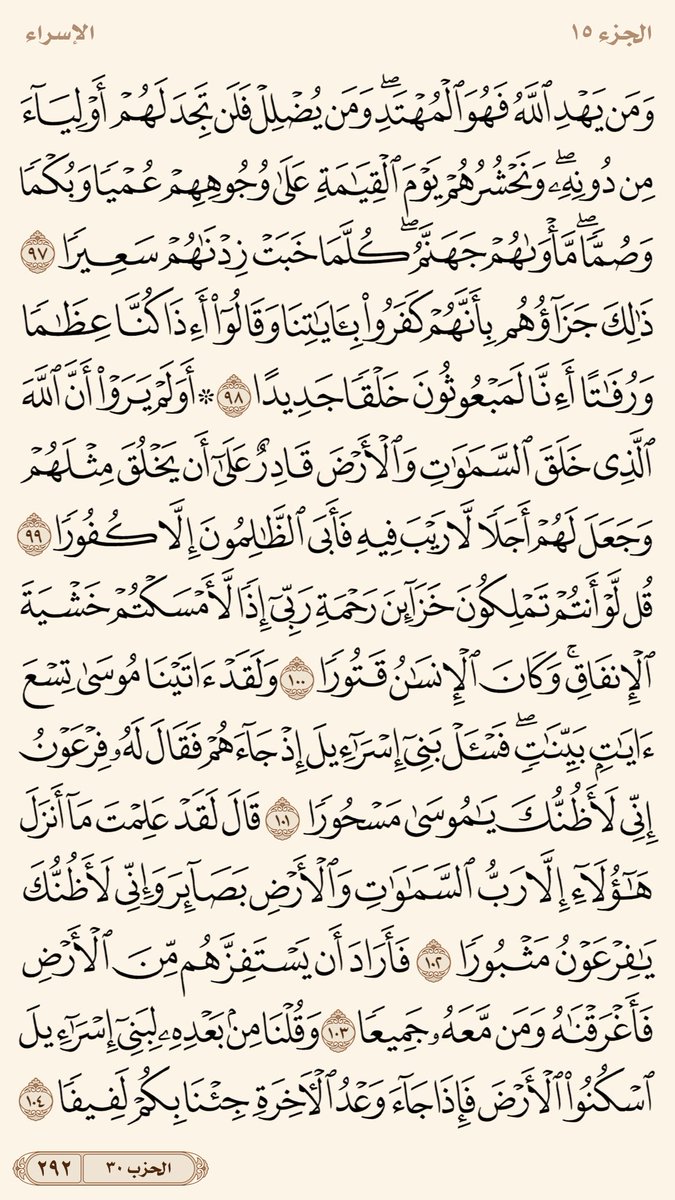 الجزء ١٥
الإسراء
وَمَن يَهْدِ ٱللَّهُ فَهُوَ ٱلْمُهْتَدِۖ وَمَن يُضْلِلْ فَلَن تَجِدَ لَهُمْ أَوْلِيَآءَ
مِن دُونِهِۦۖ وَنَحْشُرُهُمْ يَوْمَ ٱلْقِيَٰمَةِ عَلَىٰ وُجُوهِهِمْ عُمْيًا وَبُكْمًا
وَصُمًّاۖ مَّأْوَىٰهُمْ جَهَنَّمُۖ كُلَّمَا خَبَتْ زِدْنَٰهُمْ سَعِيرًا ٩٧
ذَٰلِكَ جَزَآؤُهُم بِأَنَّهُمْ كَفَرُوا۟ بِـَٔايَٰتِنَا وَقَالُوٓا۟ أَءِذَا كُنَّا عِظَٰمًا
وَرُفَٰتًا أَءِنَّا لَمَبْعُوثُونَ خَلْقًا جَدِيدًا ٩٨ ۞ أَوَلَمْ يَرَوْا۟ أَنَّ ٱللَّهَ
ٱلَّذِى خَلَقَ ٱلسَّمَٰوَٰتِ وَٱلْأَرْضَ قَادِرٌ عَلَىٰٓ أَن يَخْلُقَ مِثْلَهُمْ
وَجَعَلَ لَهُمْ أَجَلًا لَّا رَيْبَ فِيهِ فَأَبَى ٱلظَّٰلِمُونَ إِلَّا كُفُورًا ٩٩
قُل لَّوْ أَنتُمْ تَمْلِكُونَ خَزَآئِنَ رَحْمَةِ رَبِّىٓ إِذًا لَّأَمْسَكْتُمْ خَشْيَةَ
ٱلْإِنفَاقِۚ وَكَانَ ٱلْإِنسَٰنُ قَتُورًا ١٠٠ وَلَقَدْ ءَاتَيْنَا مُوسَىٰ تِسْعَ
ءَايَٰتٍۭ بَيِّنَٰتٍۖ فَسْـَٔلْ بَنِىٓ إِسْرَٰٓءِيلَ إِذْ جَآءَهُمْ فَقَالَ لَهُۥ فِرْعَوْنُ
إِنِّى لَأَظُنُّكَ يَٰمُوسَىٰ مَسْحُورًا ١٠١ قَالَ لَقَدْ عَلِمْتَ مَآ أَنزَلَ
هَٰٓؤُلَآءِ إِلَّا رَبُّ ٱلسَّمَٰوَٰتِ وَٱلْأَرْضِ بَصَآئِرَ وَإِنِّى لَأَظُنُّكَ
يَٰفِرْعَوْنُ مَثْبُورًا ١٠٢ فَأَرَادَ أَن يَسْتَفِزَّهُم مِّنَ ٱلْأَرْضِ
فَأَغْرَقْنَٰهُ وَمَن مَّعَهُۥ جَمِيعًا ١٠٣ وَقُلْنَا مِنۢ بَعْدِهِۦ لِبَنِىٓ إِسْرَٰٓءِيلَ
ٱسْكُنُوا۟ ٱلْأَرْضَ فَإِذَا جَآءَ وَعْدُ ٱلْـَٔاخِرَةِ جِئْنَا بِكُمْ لَفِيفًا ١٠٤
الحزب ٣٠
٢٩٢